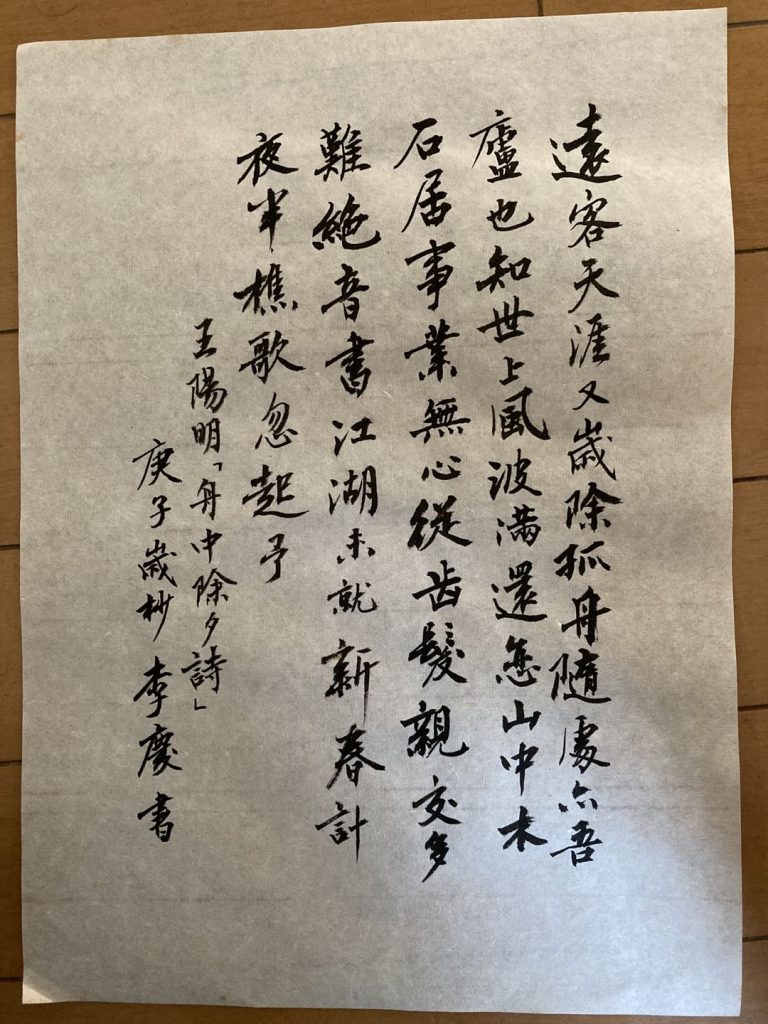 遠客天涯又歳除孤舟隨處亦吾
廬也知世上風波滿還戀山中木
石居事業無心從齒髮親交多
難絶音書江湖未就新春計
夜半樵歌忽起予
王陽明「舟中除夕詩」
庚子歳杪 李慶書